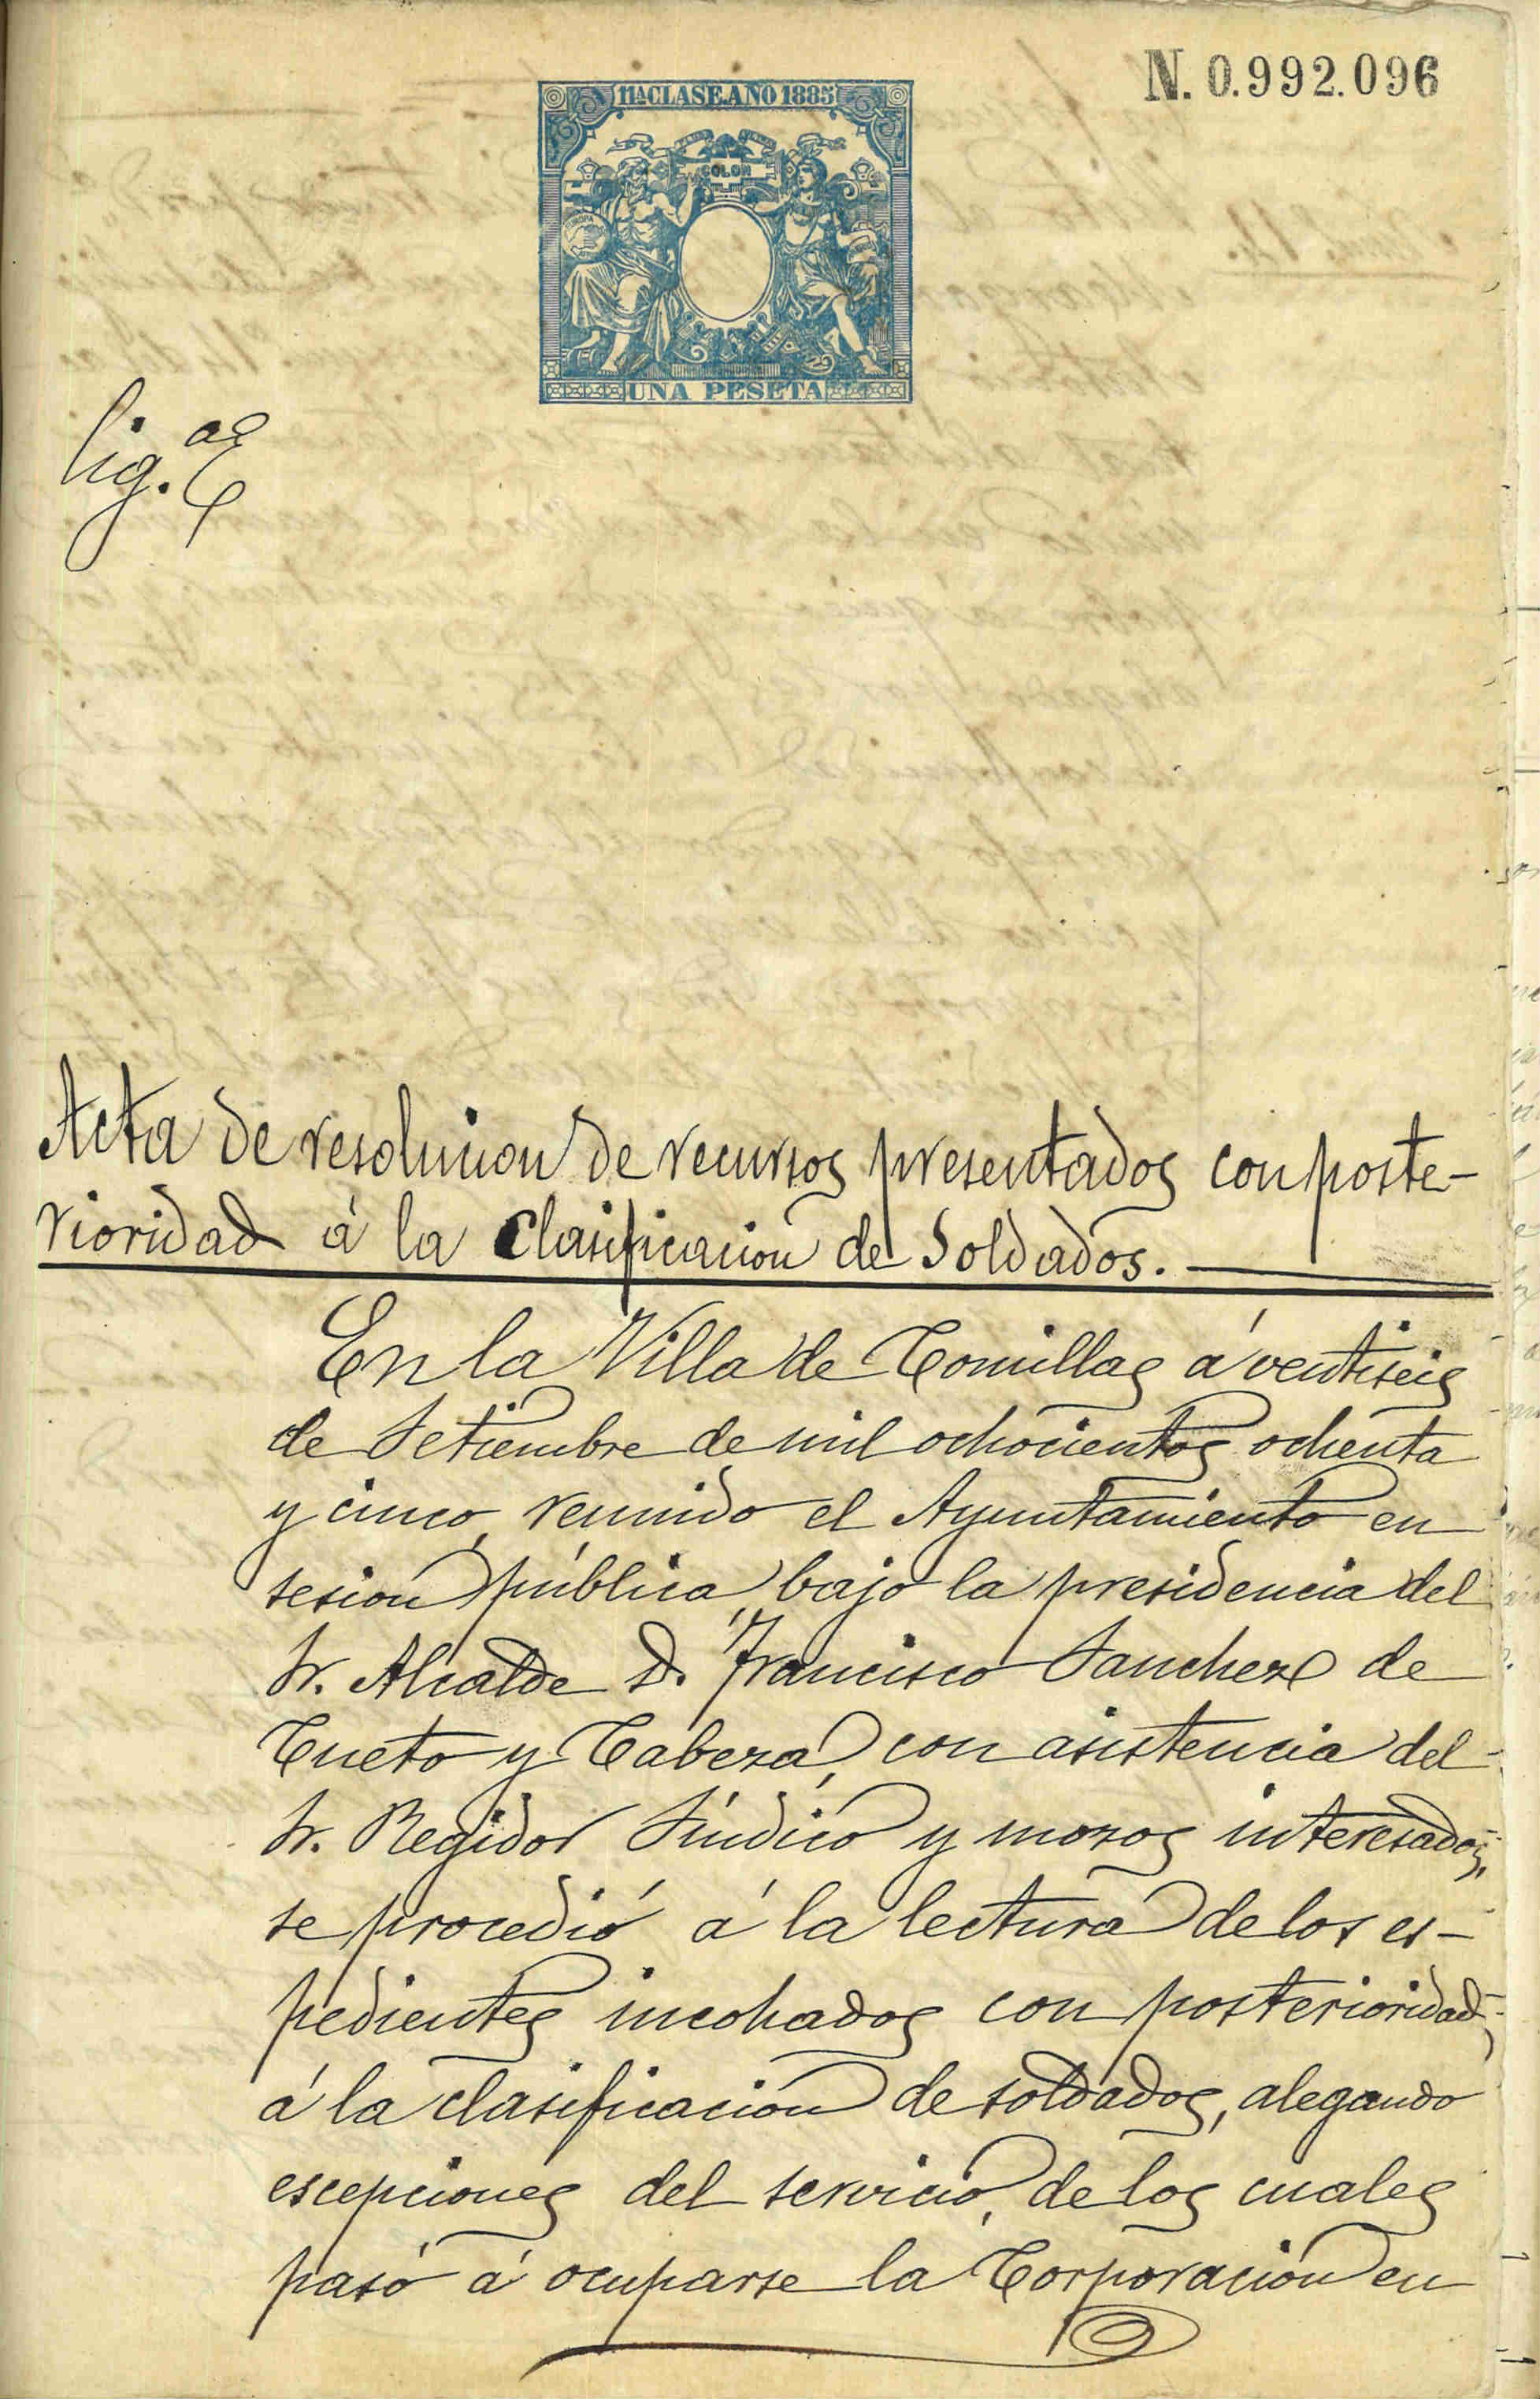 N. 0.992.096
11ª CLASE. AÑO 1885
COLON
EUROPA
UNA PESETA
Acta de resolucion de recursos presentados con poste-
rioridad á la Clasificacion de Soldados.
En la Villa de Comillas á ventiseis
de Setiembre de mil ochocientos ochenta
y cinco, reunido el Ayuntamiento en
sesion pública, bajo la presidencia del
Sr. Alcalde D. Francisco Sanchez de
Cueto y Cabeza, con asistencia del
Sr. Regidor Síndico y mozos interesados,
se procedió á la lectura de los es-
pedientes incohados con posterioridad,
á la clasificacion de soldados, alegando
escepciones del servicio, de los cuales
pasó á ocuparse la Corporacion en